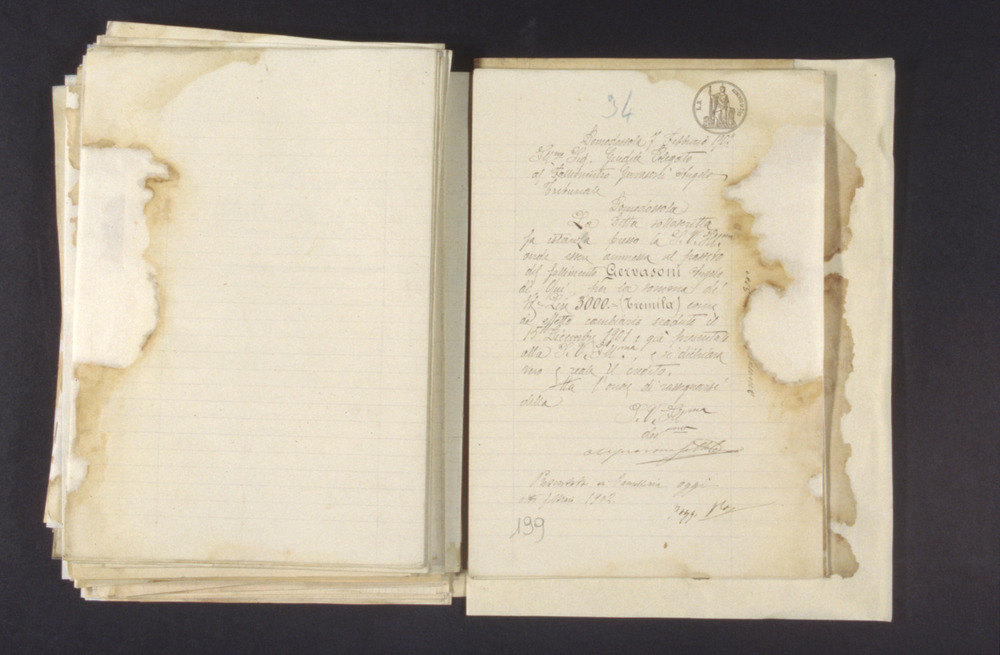 34
Domodossola 7 Febbraio 1902
Ill.mo Sig. Giudice Delegato
al Fallimento Gervasoni Angelo
Tribunale
Domodossola
La Ditta sottoscritta
fa istanza presso la S. V. Ill.ma
onde essere ammessa al passivo
del fallimento Gervasoni Angelo
di qui per la somma di
Lire 3000.- (Tremila) come
da effetto cambiario scaduto il
15 Dicembre 1901 e già presentato
alla S. V. Ill.ma, e si dichiara
vero e reale il credito.
Ha l'onore di rassegnarsi
della
S. V. Ill.ma
dev.mo
Presentata in Cancelleria oggi
febbraio 1902.
139